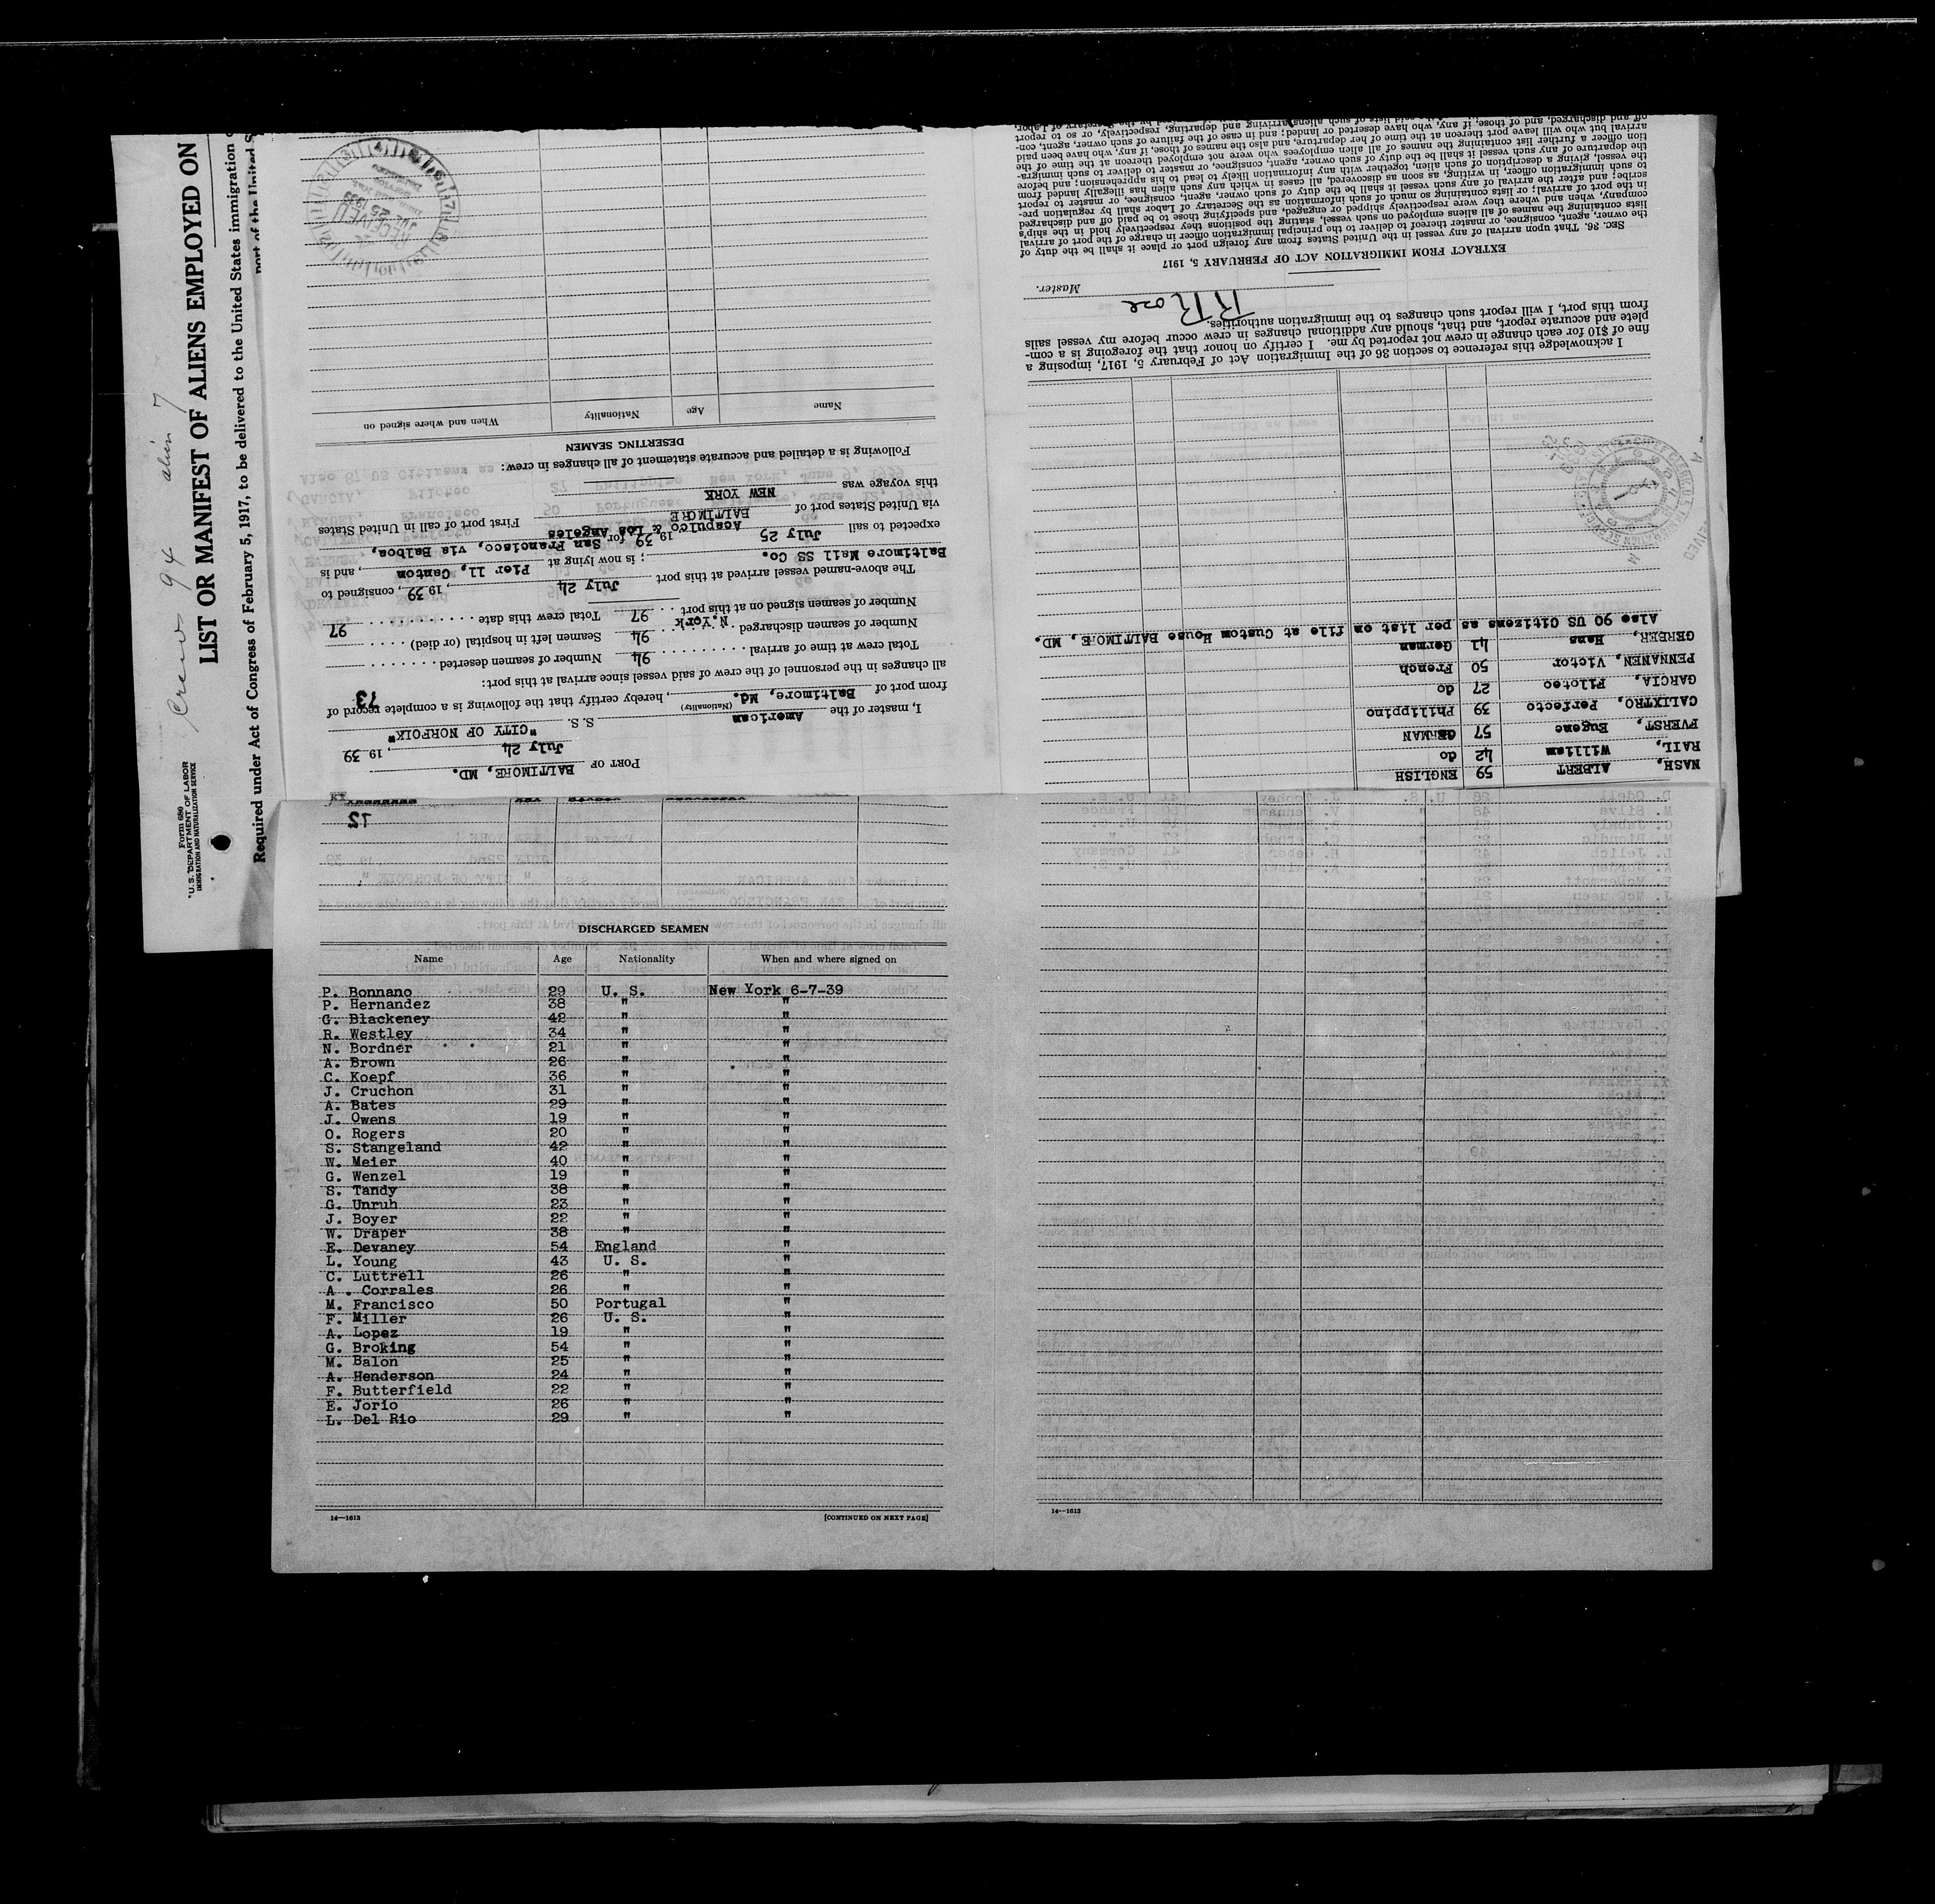 Crew 94 alien 7
LIST OR MANIFEST OF ALIENS EMPLOYED ON
Required under Act of Congress of February 5, 1917, to be delivered to the United States immigration
port of the United
Form 680
U. S. DEPARTMENT OF LABOR
IMMIGRATION AND NATURALIZATION SERVICE
PORT OF BALTIMORE, MD.
July 24, 19 39
I, master of the American S. S. "CITY OF NORFOLK"
(Nationality)
from port of Baltimore, Md., hereby certify that the following is a complete record of
all changes in the personnel of the crew of said vessel since arrival at this port: 73
Total crew at time of arrival 94 Number of seamen deserted
Number of seamen discharged N.York 94 Seamen left in hospital (or died)
Number of seamen signed on at this port 97 Total crew this date 97
The above-named vessel arrived at this port July 24, 19 39, consigned to
Baltimore Mail SS Co.; is now lying at Pier 11, Canton, and is
expected to sail July 25 19 39 for San Francisco, via Balboa,
Acapulco & Los Angeles
via United States port of BALTIMORE First port of call in United States
this voyage was NEW YORK
Following is a detailed and accurate statement of all changes in crew:
DESERTING SEAMEN
Name Age Nationality When and where signed on
RECEIVED
JUL 25 1939
NASH, ALBERT 59 ENGLISH
RAIL, William 42 do
FVERST, Eugene 57 GERMAN
CALIXTRO, Perfecto 39 Philippino
GARCIA, Filoteo 27 do
PENNANEN, Victor 50 French
GERBER, Hans 41 German
Also 90 US Citizens as per list on file at Custom House BALTIMORE, MD.
I acknowledge this reference to section 36 of the Immigration Act of February 5, 1917, imposing a
fine of $10 for each change in crew not reported by me. I certify on honor that the foregoing is a com-
plete and accurate report, and that, should any additional changes in crew occur before my vessel sails
from this port, I will report such changes to the immigration authorities.
Master.
EXTRACT FROM IMMIGRATION ACT OF FEBRUARY 5, 1917
SEC. 36. That upon arrival of any vessel in the United States from any foreign port or place it shall be the duty of
the owner, agent, consignee, or master thereof to deliver to the principal immigration officer in charge of the port of arrival
lists containing the names of all aliens employed on such vessel, stating the positions they respectively hold in the ship's
company, when and where they were respectively shipped or engaged, and specifying those to be paid off and discharged
in the port of arrival; or lists containing so much of such information as the Secretary of Labor shall by regulation pre-
scribe; and after the arrival of any such vessel it shall be the duty of such owner, agent, consignee, or master to report
to such immigration officer, in writing, as soon as discovered, all cases in which any such alien has illegally landed from
the vessel, giving a description of such alien, together with any information likely to lead to his apprehension; and before
the departure of any such vessel it shall be the duty of such owner, agent, consignee, or master to deliver to such immigra-
tion officer a further list containing the names of all alien employees who were not employed thereon at the time of the
arrival but who will leave port thereon at the time of her departure, and also the names of those, if any, who have been paid
off and discharged, and of those, if any, who have deserted or landed; and in case of the failure of such owner, agent, con-
12
DISCHARGED SEAMEN
Name Age Nationality When and where signed on
P. Bonnano 29 U. S. New York 6-7-39
P. Hernandez 38 " "
G. Blackeney 42 " "
R. Westley 34 " "
N. Bordner 21 " "
A. Brown 26 " "
C. Koepf 36 " "
J. Cruchon 31 " "
A. Bates 29 " "
J. Owens 19 " "
O. Rogers 20 " "
S. Stangeland 42 " "
W. Meier 40 " "
G. Wenzel 19 " "
S. Tandy 38 " "
G. Unruh 23 " "
J. Boyer 22 " "
W. Draper 38 " "
E. Devaney 54 England "
L. Young 43 U. S. "
C. Luttrell 26 " "
A . Corrales 26 " "
M. Francisco 50 Portugal "
F. Miller 26 U. S. "
A. Lopez 19 " "
G. Broking 54 " "
M. Balon 25 " "
A. Henderson 24 " "
F. Butterfield 22 " "
E. Jorio 26 " "
L. Del Rio 29 " "
14—1613 [CONTINUED ON NEXT PAGE]
14—1613